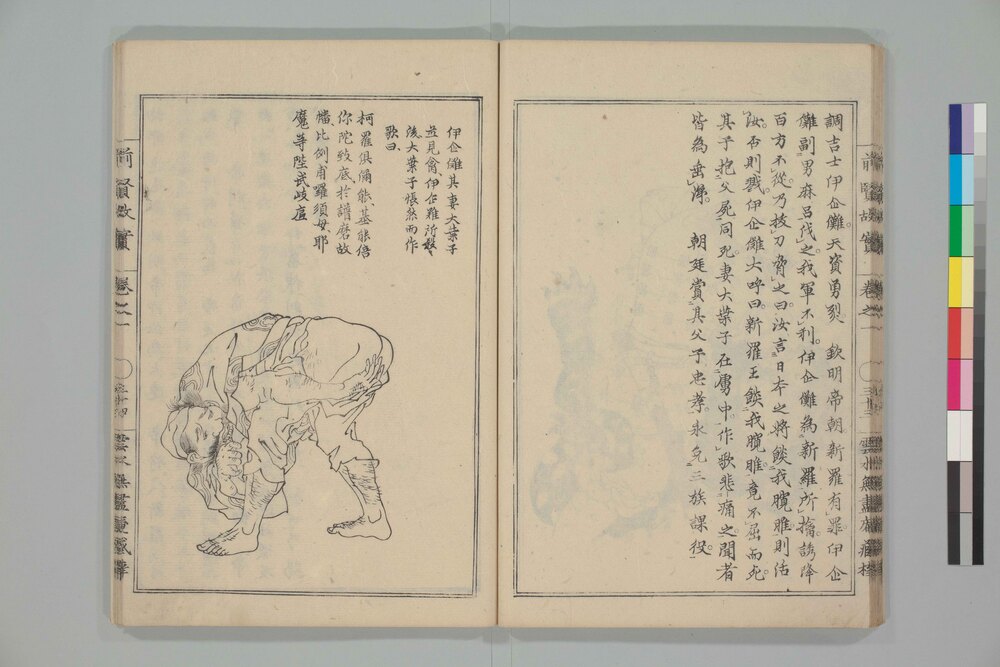 調吉士伊企儺天資勇烈 欽明帝朝新羅有罪伊企
儺副男麻呂伐之我軍不利伊企儺為新羅所擒誘降
百方不從乃拔刀脅之曰汝言日本之將餤我臗脽則活
汝否則戮伊企儺大呼曰新羅王餤我臗脽竟不屈而死
其子抱父屍同死妻大葉子在虜中作歌悲痛之聞者
皆為垂涕 朝廷賞其父子忠孝永免三族課役
前賢故實 卷之一
伊企儺其妻大葉子
並見禽伊企難所殺
後大葉子悵然而作
歌曰
柯羅俱爾能基能倍
你陀致底於譜磨故
幡比例甫羅須母耶
魔等陛武岐底
前賢故實 卷之一